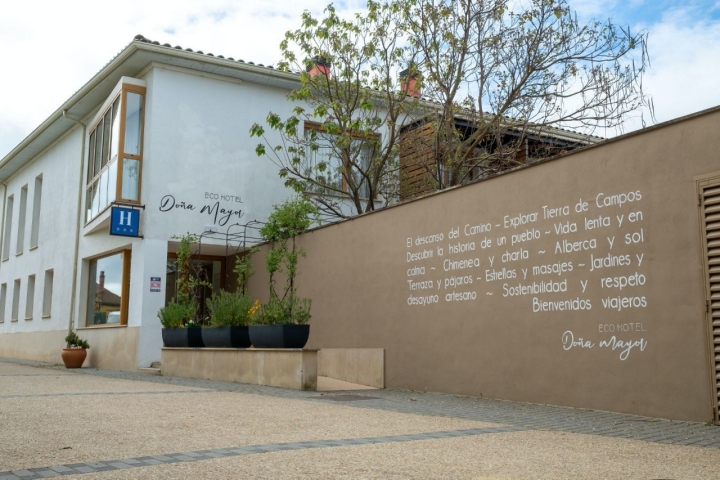 ECO HOTEL
Doña Mayor
H
El descanso del Camino - Explorar Tierra de Campos
Descubrir la historia de un pueblo - Vida lenta y en
calma ~ Chimenea y charla ~ Alberca y sol
Terraza y pájaros - Estrellas y masajes - Jardines y
desayuno artesano ~ Sostenibilidad y respeto
Bienvenidos viajeros
ECO HOTEL
Doña Mayor